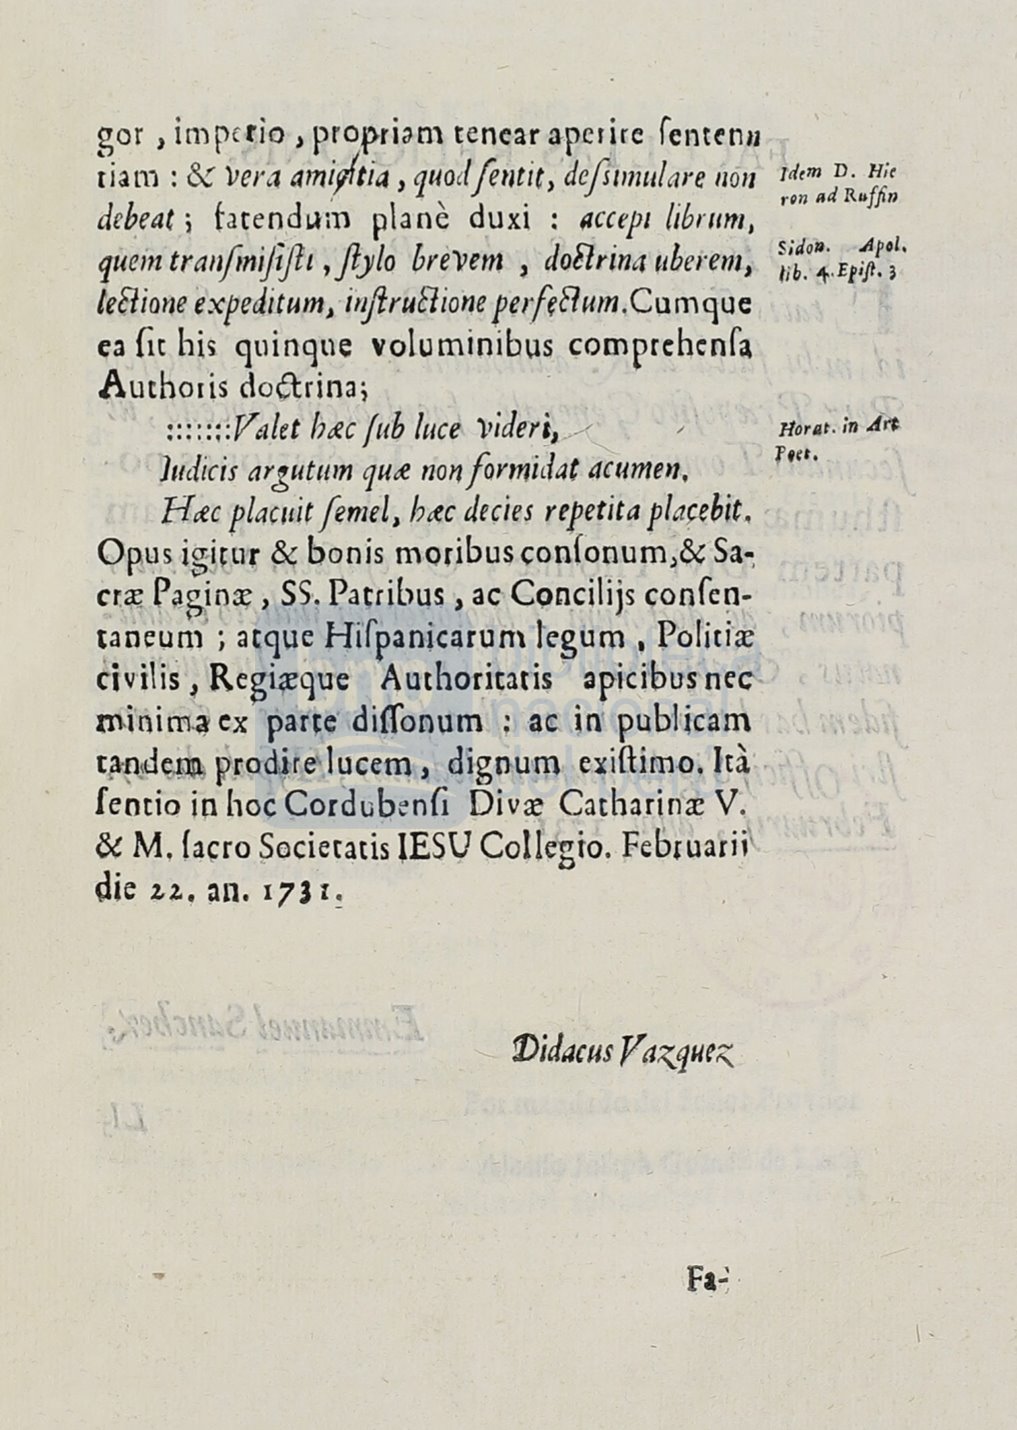 gor , imperio , propriam tenear aperire ſenten
tiam : & vera amicitia , quod ſentit, deſsimulare non
debeat ; fatendum planè duxi : accepi librum,
quem tranſmiſiſti , ſtylo brevem , doctrina uberem,
lectione expeditum, inſtructione perfectum. Cumque
ea ſit his quinque voluminibus comprehenſa
Authoris doctrina;
:::::::Valet hæc ſub luce videri,
Iudicis argutum quæ non formidat acumen.
Hæc placuit ſemel, hæc decies repetita placebit.
Opus igitur & bonis moribus conſonum,& Sa-
cræ Paginæ , SS. Patribus , ac Concilijs conſen-
taneum ; atque Hiſpanicarum legum , Politiæ
civilis , Regiæque Authoritatis apicibus nec
minima ex parte diſſonum : ac in publicam
tandem prodire lucem, dignum exiſtimo. Ità
ſentio in hoc Cordubenſi Divæ Catharinæ V.
& M. ſacro Societatis IESU Collegio. Februarii
die 22. an. 1731.
Idem D. Hie
ron ad Ruffin
Sidon. Apol.
lib. 4. Epiſt. 3
Horat. in Art
Poet.
Didacus Vazquez
Fa-